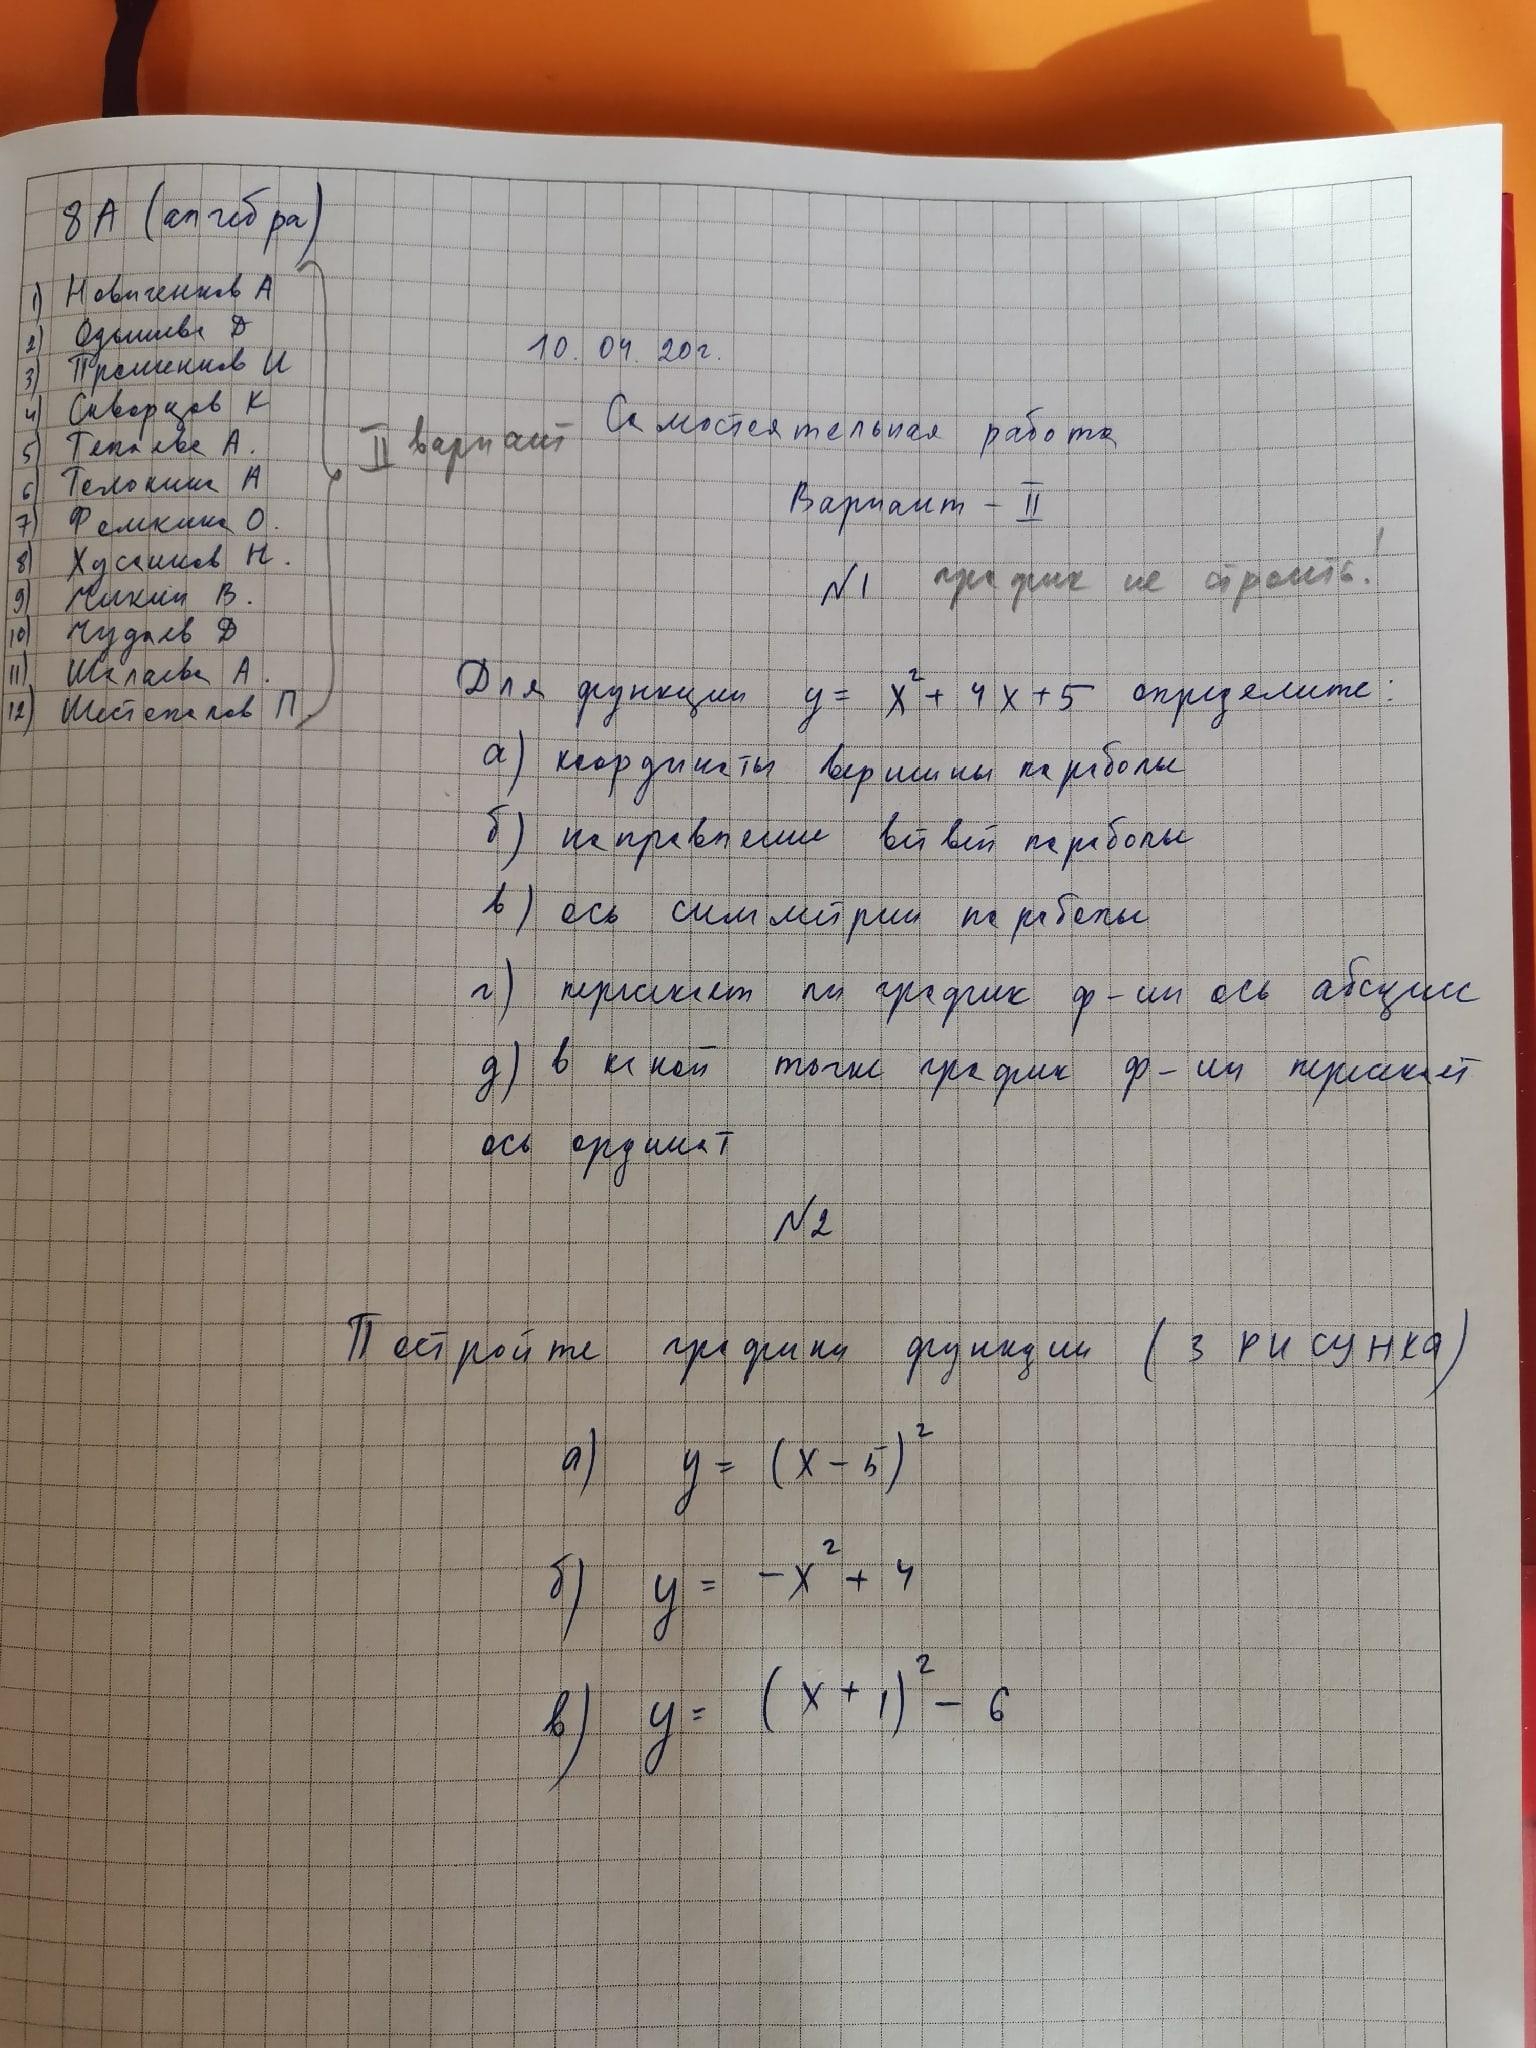 8А (алгебра)
1) Новиченков А
2) Одышева Д
3) Прошенков И
4) Скворцов К
5) Тепаева А.
6) Телокина А
7) Фомкина О.
8) Хусаинов Н.
9) Чикин В.
10) Чудаев Д
11) Шалаева А.
12) Шестопалов П
II вариант
10. 04. 20г.
Самостоятельная работа
Вариант - II
№1 график не строить!
Для функции y = x² + 4x + 5 определите:
а) координаты вершины параболы
б) направление ветвей параболы
в) ось симметрии параболы
г) пересекает ли график ф-ии ось абсцисс
д) в какой точке график ф-ии пересекает
ось ординат
№2
Постройте графики функции (3 рисунка)
а) y = (x - 5)²
б) y = -x² + 4
в) y = (x + 1)² - 6